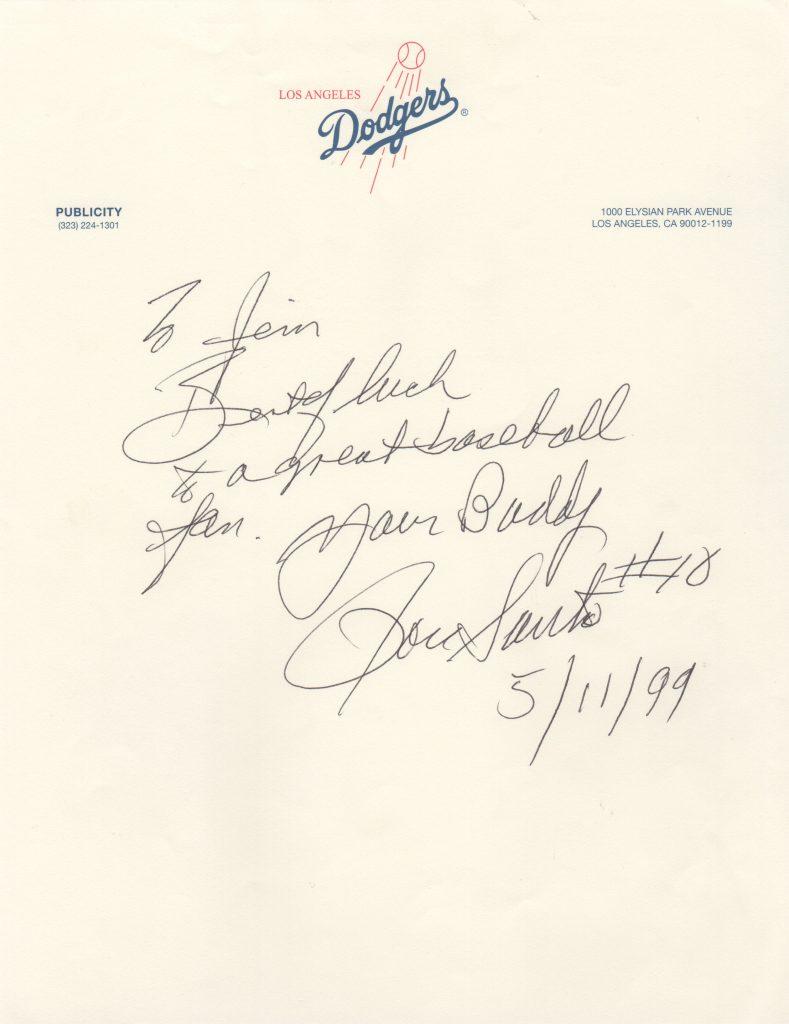 LOS ANGELES
Dodgers ®
PUBLICITY
(323) 224-1301
1000 ELYSIAN PARK AVENUE
LOS ANGELES, CA 90012-1199
To Jim
Best of luck
to a great baseball
fan. Your Buddy
Ron Santo #10
5/11/99